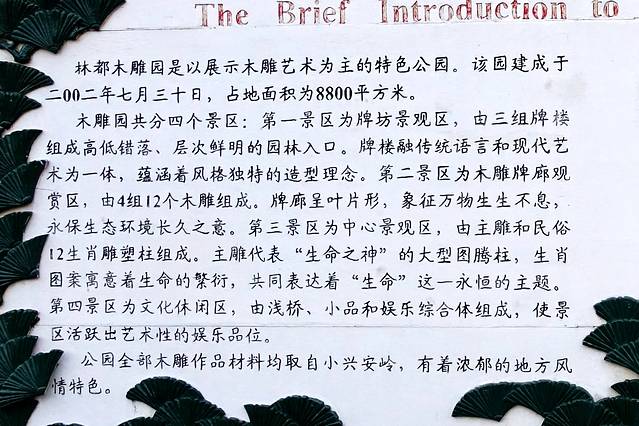 The Brief Introduction to
林都木雕园是以展示木雕艺术为主的特色公园。该园建成于
二00二年七月三十日，占地面积为8800平方米。
木雕园共分四个景区：第一景区为牌坊景观区，由三组牌楼
组成高低错落、层次鲜明的园林入口。牌楼融传统语言和现代艺
术为一体，蕴涵着风格独特的造型理念。第二景区为木雕牌廊观
赏区，由4组12个木雕组成。牌廊呈叶片形，象征万物生生不息，
永保生态环境长久之意。第三景区为中心景观区，由主雕和民俗
12生肖雕塑柱组成。主雕代表“生命之神”的大型图腾柱，生肖
图案寓意着生命的繁衍，共同表达着“生命”这一永恒的主题。
第四景区为文化休闲区，由浅桥、小品和娱乐综合体组成，使景
区活跃出艺术性的娱乐品位。
公园全部木雕作品材料均取自小兴安岭，有着浓郁的地方风
情特色。